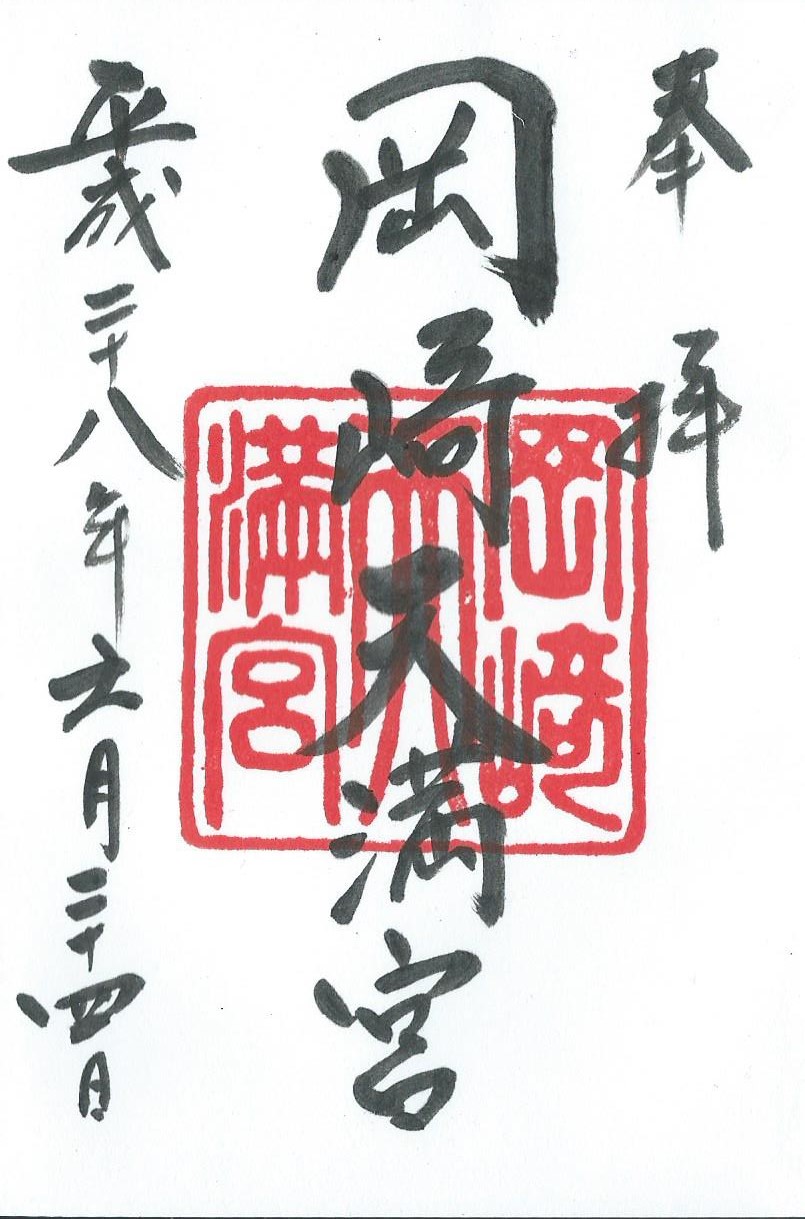 奉拝
岡﨑天満宮
岡﨑
天
満宮
平成二十八年六月二十四日